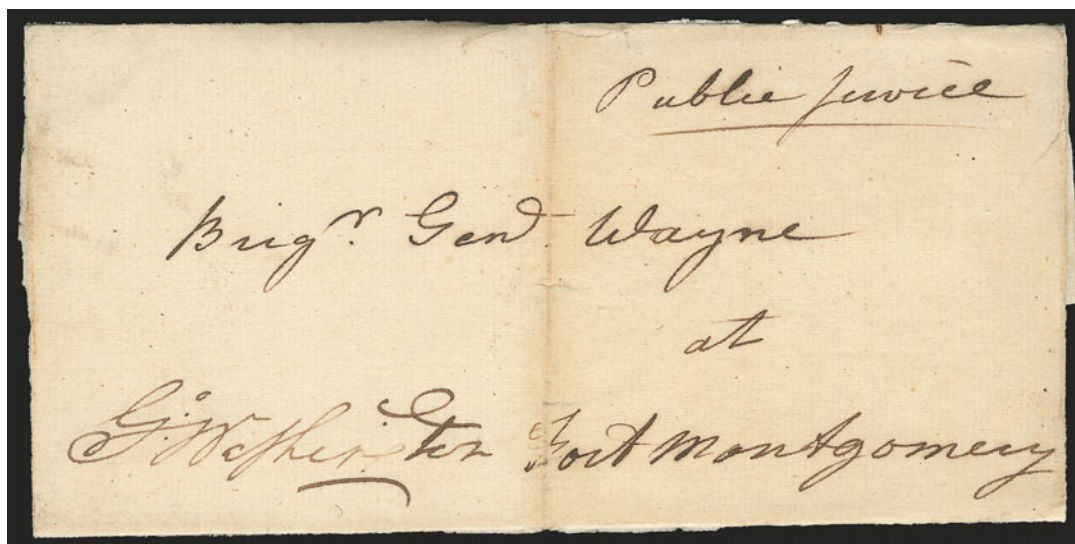 Public Service
Brigr. Genl. Wayne
at
Go: Washington Fort Montgomery